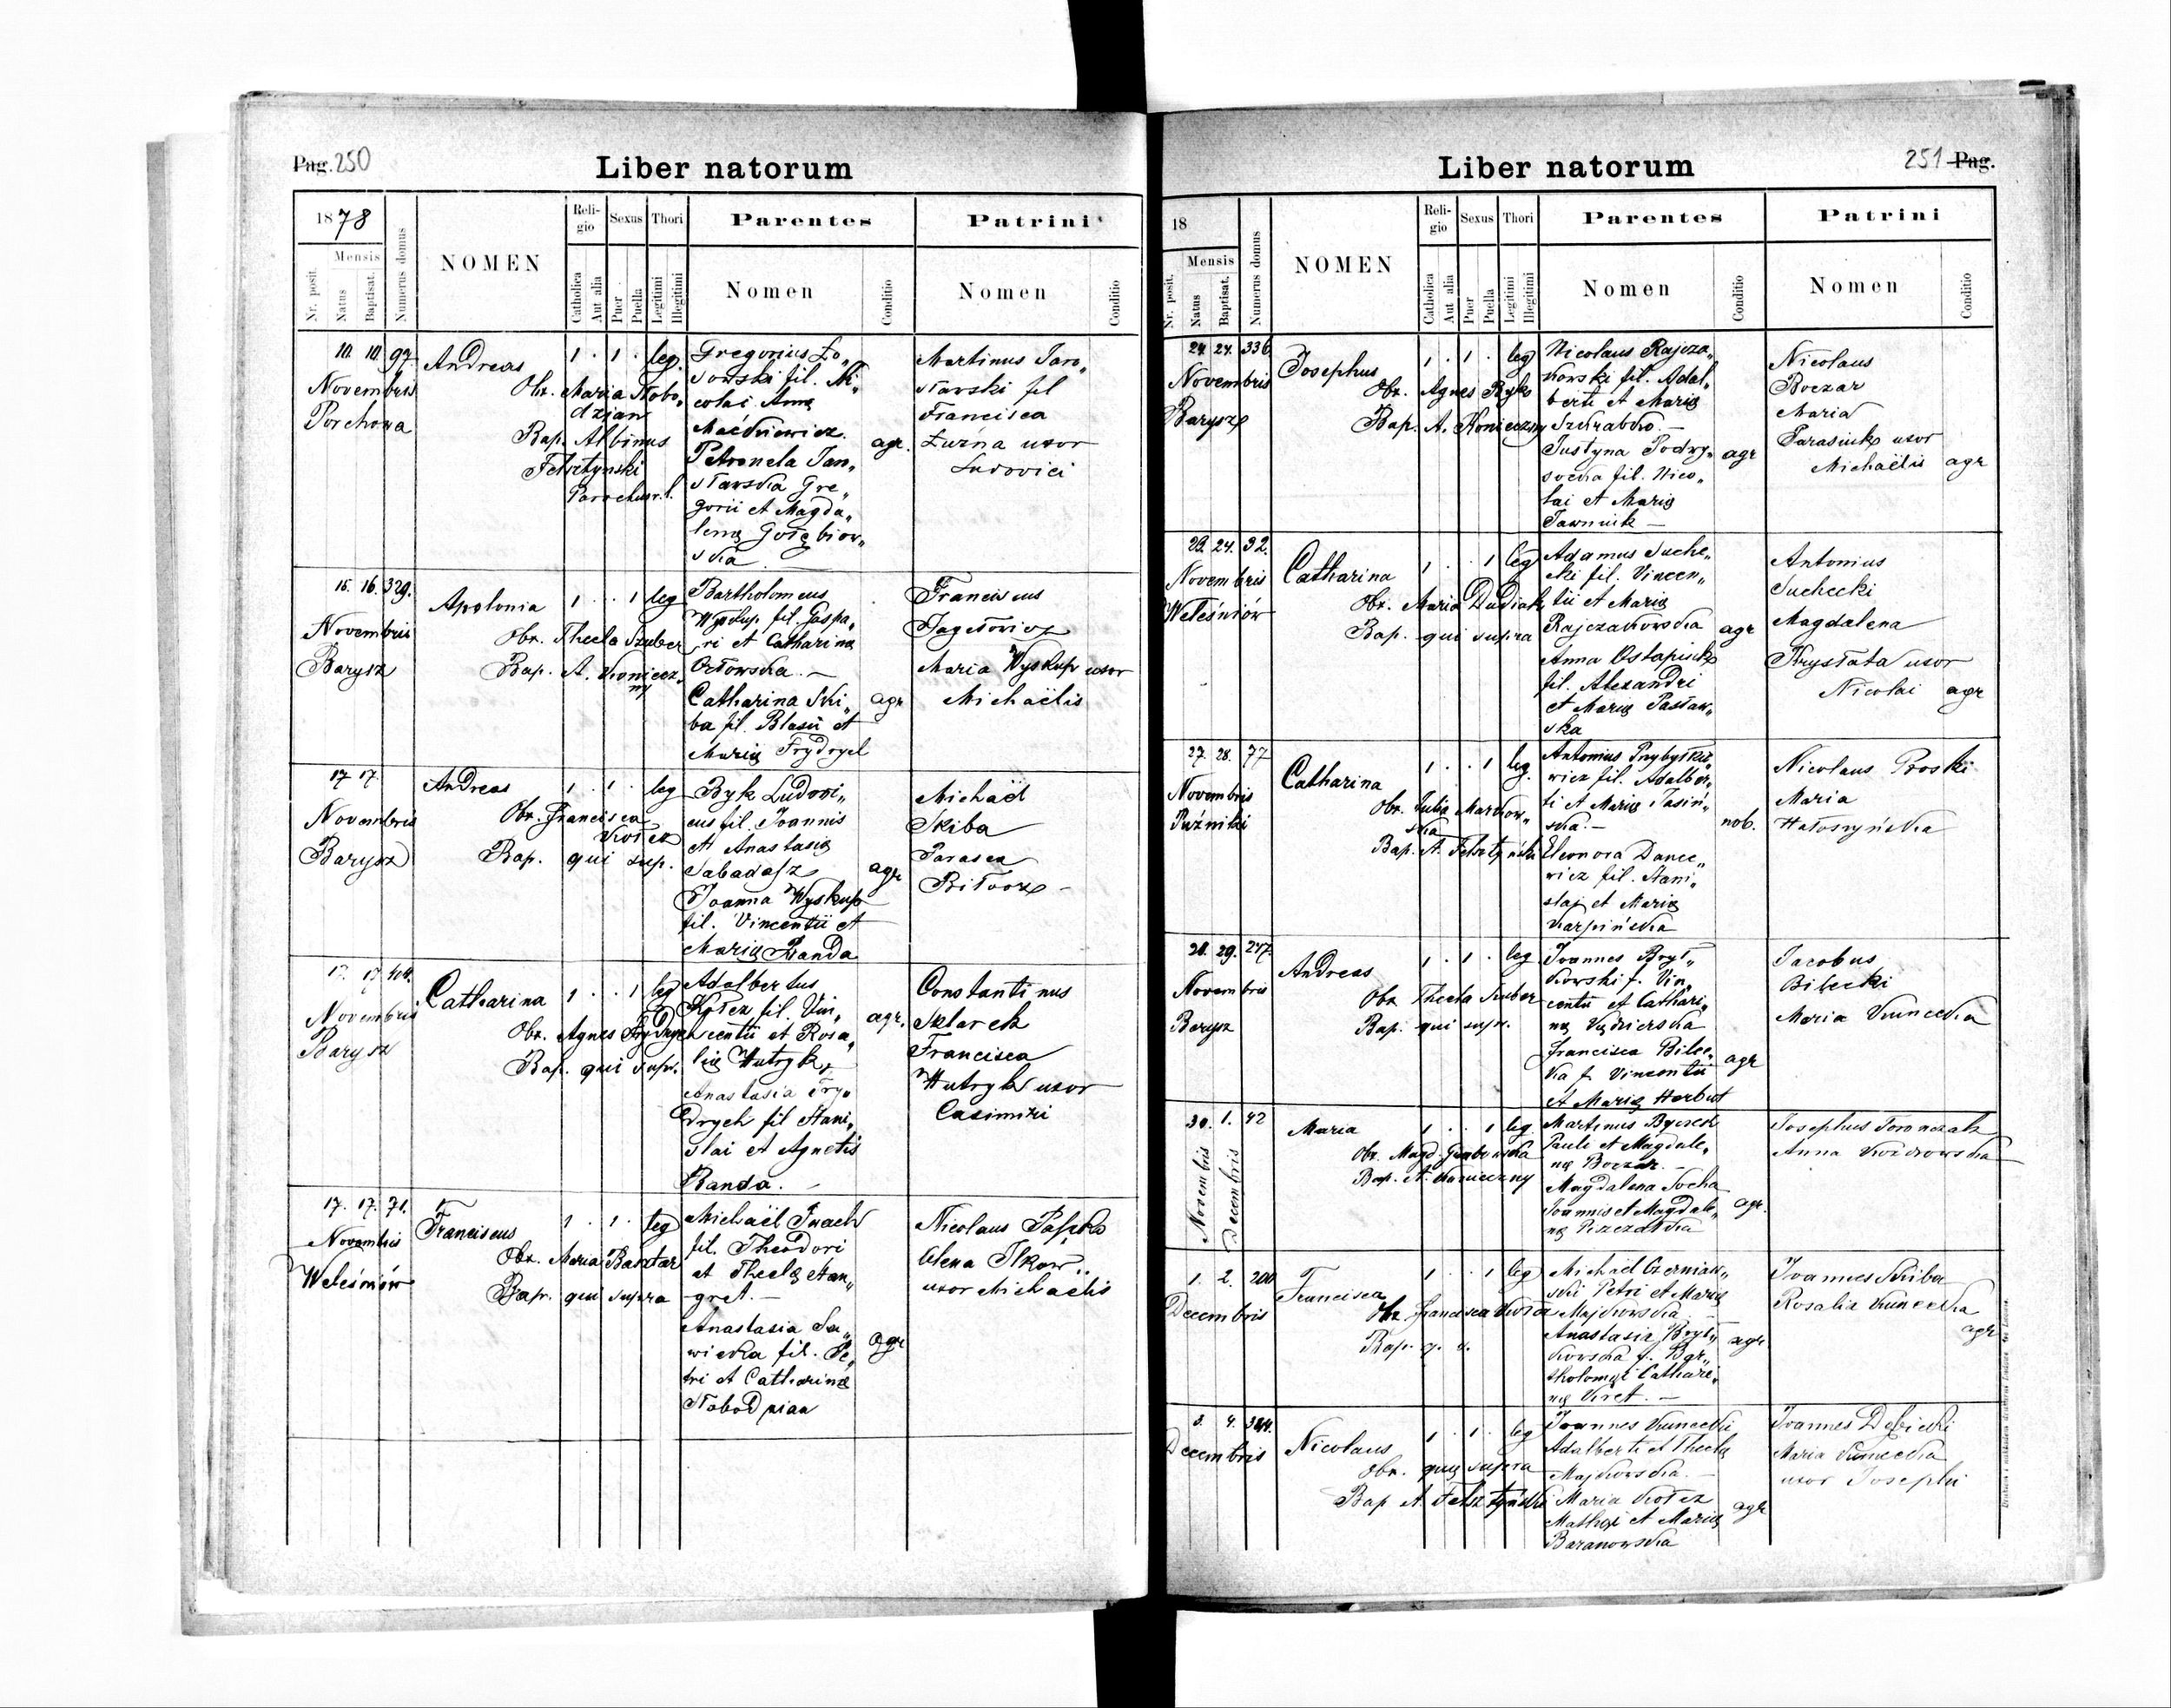 Pag. 250
Liber natorum
1878
Mensis
Nr. posit.
Natus
Baptisat.
Numerus domus
NOMEN
Reli-
gio
Sexus
Thori
Catholica
Aut alia
Puer
Puella
Legitimi
Illegitimi
Parentes
Nomen
Conditio
Patrini
Nomen
Conditio
10. 10. 97.
Novembris
Porchowa
Andreas
Obr. Maria Stobo„
dzian
Bap. Albinus
Felsztynski
Parochus r. l.
1 . 1 . leg.
Gregorius
sowski fil. Ni„
colai Anna
Maćkiewicz.
Petronela Jan„
Gre„
gorii et Magda„
lenę Gołębiow„
ska
agr.
Martinus Jaro„
sławski fil
Francisca
Luzna uxor
Ludovici
15. 16. 329.
Novembris
Barysz
Apolonia
Obr. Thecla Szuber
Bap. A. Koniecz„
ny
1 . . 1 leg
Bartholomeus
Wyskup fil. Gaspa„
ri et Catharina
Orłowska. —
Catharina Ski„
ba fil. Blasii et
Marię Frydrych
agr
Franciscus
Jagełowicz
Maria Wyskup uxor
Michaëlis
17 17.
Novembris
Barysz
Andreas
Obr. Francisca
Kołcz
Bap. qui sup.
1 . 1 . leg
Byk Ludovi„
cus fil. Joannis
et Anastasię
Sabadasz
Joanna Wyskup
fil. Vincentii et
Marię Banda
agr
Michaël
Skiba
Parasca
17. 17.
Novembris
Barysz
Catharina
Obr. Agnes Frydrych
Bap. qui supr.
1 . . 1 leg
Adalbertus
Kołcz fil. Vin„
centii et Rosa„
lię Hutryk
Anastasia Fry„
drych fil Stani„
slai et Agnetis
Banda. —
agr.
Constantinus
Szlarek
Francisca
Hutryk uxor
Casimiri
17. 17. 71.
Novembris
Weleśniów
Franciscus
Obr. Maria Basztar
Bap. qui supra
1 . 1 . leg
Michaël
fil. Theodori
et Theclę Stan„
gret. —
Anastasia Sa„
wicka fil. Pe„
tri et Catharinę
Słobodzian
agr
Nicolaus Paszko
Olena Ilkow
uxor Michaelis
251 Pag.
Liber natorum
18
Mensis
Nr. posit.
Natus
Baptisat.
Numerus domus
NOMEN
Reli-
gio
Sexus
Thori
Catholica
Aut alia
Puer
Puella
Legitimi
Illegitimi
Parentes
Nomen
Conditio
Patrini
Nomen
Conditio
24. 24. 336
Novembris
Barysz
Josephus
Obr. Agnes Byk
Bap. A. Konieczny
1 . 1 . leg
Nicolaus Rajcza„
kowski fil. Adal„
berti et Marię
Szkrabko. —
Justyna Podwy„
socka fil. Nico„
lai et Marię
Jawnuk —
agr
Nicolaus
Boczar
Maria
Parasiuk uxor
Michaëlis agr
23. 24. 32.
Novembris
Weleśniów
Catharina
Obr. Maria Dudiak
Bap. qui supra
1 . . 1 leg
Adamus Suche„
cki fil. Vincen„
tii et Marię
Rajczakowska
Anna Ostapiuk
fil. Alexandri
et Marię Pasław„
ska
agr
Antonius
Suchecki
Magdalena
Kryształa uxor
Nicolai agr
27. 28. 77
Novembris
Puźniki
Catharina
Obr. Julia Markow„
ska
Bap. A. Felsztyński
1 . . 1 leg.
Antonius Przybyłkie„
wicz fil. Adalber„
ti et Marię Jasiń„
ska. —
Eleonora Dance„
wicz fil. Stani„
slai et Marię
Karpińska
nob.
Nicolaus Proski
Maria
Hałoszyńska
28. 29. 247.
Novembris
Barysz
Andreas
Obr Thecla Szuber
Bap. qui supr.
1 . 1 . leg
Joannes Brył„
kowski f. Vin„
centii et Cathari„
nę
Francisca Bilec„
ka f. Vincentii
et Marię Herbut
agr
Jacobus
Bilecki
Maria Kunecka
30. 1. 42
Novembris
Decembris
Maria
Obr. Magd. Grabowska
Bap. A. Konieczny
1 . . 1 leg.
Martinus Byczek
Pauli et Magdale„
nę Boczar. —
Magdalena Socha
Joannis et Magdale„
nę
agr.
Josephus Toronczak
Anna
1. 2. 200
Decembris
Francisca
Obr. Francisca
Bap. q. s.
1 . . 1 leg
Michaël Czerniaw„
ski Petri et Marię
Majkowska —
Anastasia Brył„
kowska f. Bar„
tholomęi Cathari„
nę Kret. —
agr
Joannes Skiba
Rosalia Kunecka
agr
3. 4. 344.
Decembris
Nicolaus
Obr. quę supra
Bap A. Felsztyński
1 . 1 . leg
Joannes Kunecki
Adalberti et Theclę
Majkowska. —
Maria Kołcz
Mathęi et Marię
Baranowska
agr
Joannes Dębicki
Maria Kunecka
uxor Josephi